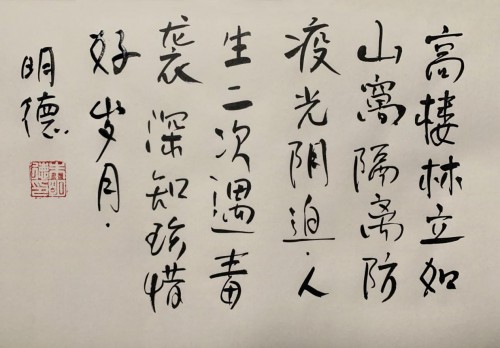 高楼林立如
山窝隔离防
疫光阴迫.人
生二次遇毒
袭深知珍惜
好岁月.
明德